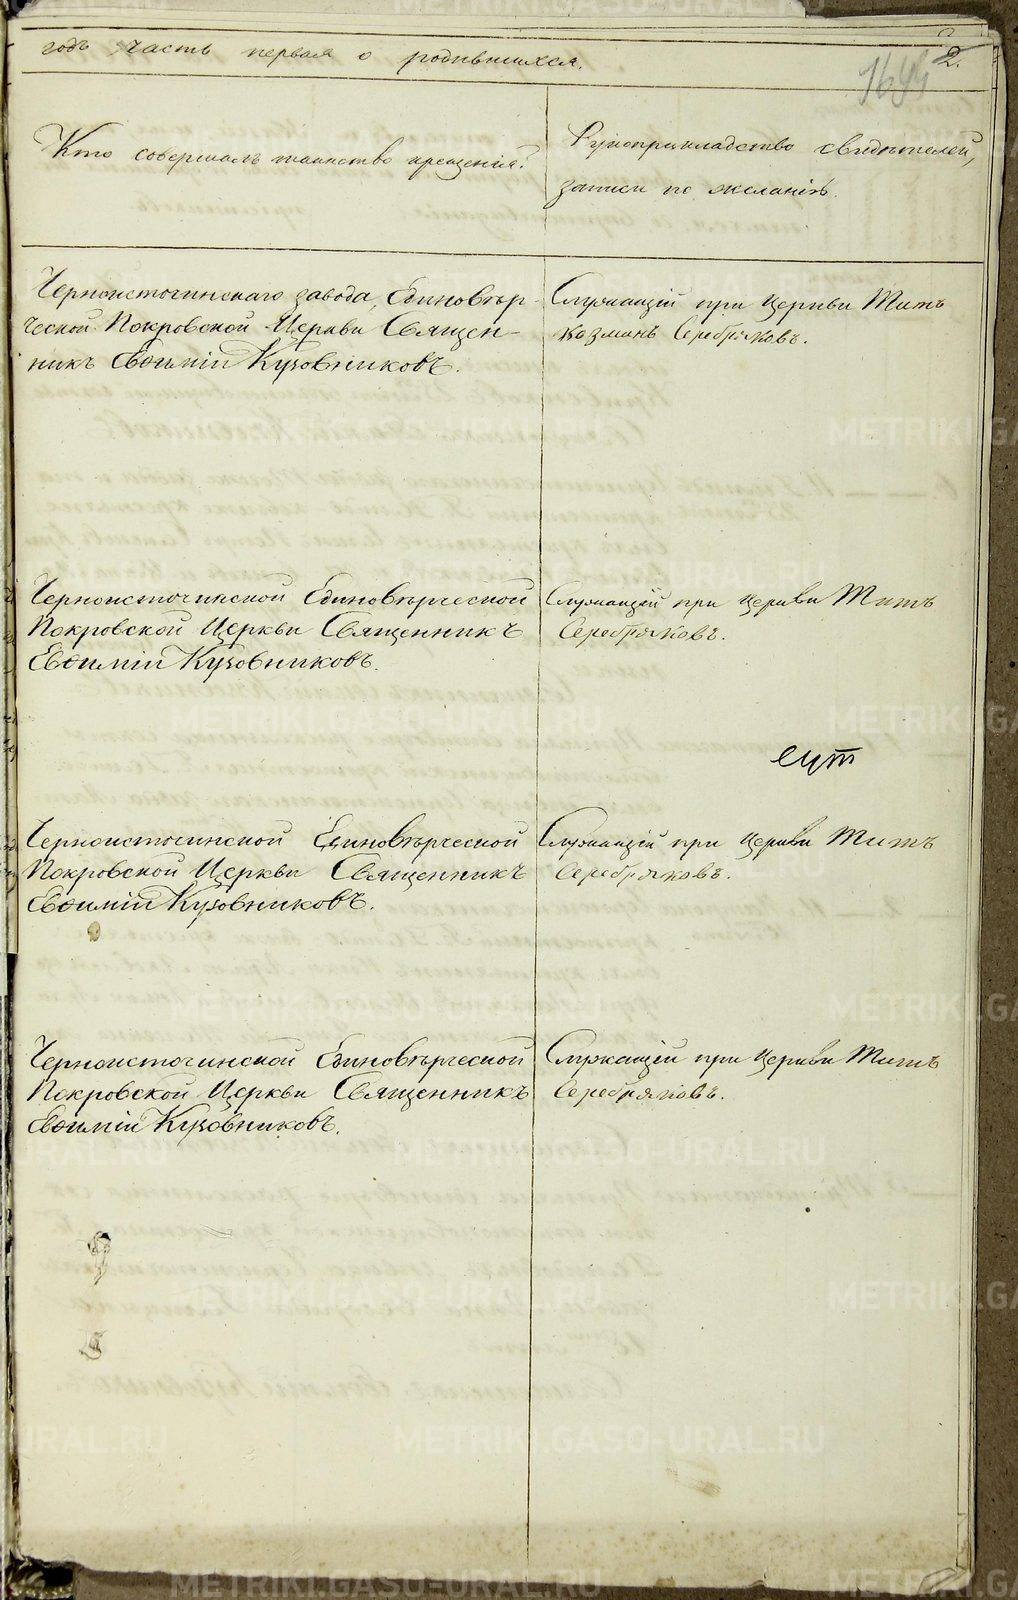 годъ часть первая о родившихся.
2.
Кто совершалъ таинство крещенія?
Рукоприкладство свидѣтелей,
записи по желанію.
Черноисточинскаго завода, Единовѣр-
ческой Покровской Церкви Священ-
никъ Евѳимій Кузовниковъ.
Служащій при Церкви Титъ
Козминъ Серебряковъ.
Черноисточинской Единовѣрческой
Покровской Церкви Священникъ
Евѳимій Кузовниковъ.
Служащій при Церкви Титъ
Серебряковъ.
Черноисточинской Единовѣрческой
Покровской Церкви Священникъ
Евѳимій Кузовниковъ.
Служащій при Церкви Титъ
Серебряковъ.
Черноисточинской Единовѣрческой
Покровской Церкви Священникъ
Евѳимій Кузовниковъ.
Служащій при Церкви Титъ
Серебряковъ.
METRIKI.GASO-URAL.RU